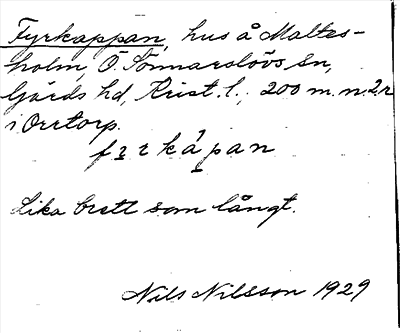 Fyrkappan, hus å Maltes-
holm, Ö. Sönnarslövs sn,
Gärds hd, Krist. l., 200 m. n.
i Orrtorp.
Lika brett som långt.
Nils Nilsson 1929